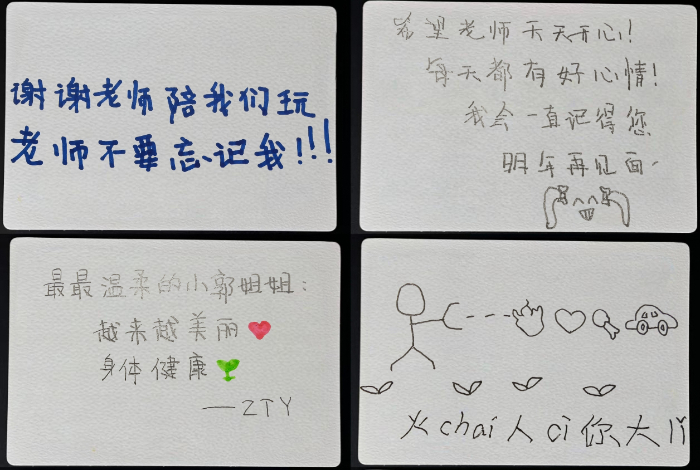 谢谢老师陪我们玩
老师不要忘记我!!!
希望老师天天开心!
每天都有好心情!
我会一直记得您
明年再见面.
最最温柔的小郭姐姐:
越来越美丽
身体健康
——ZTY
火chai人ci你大li